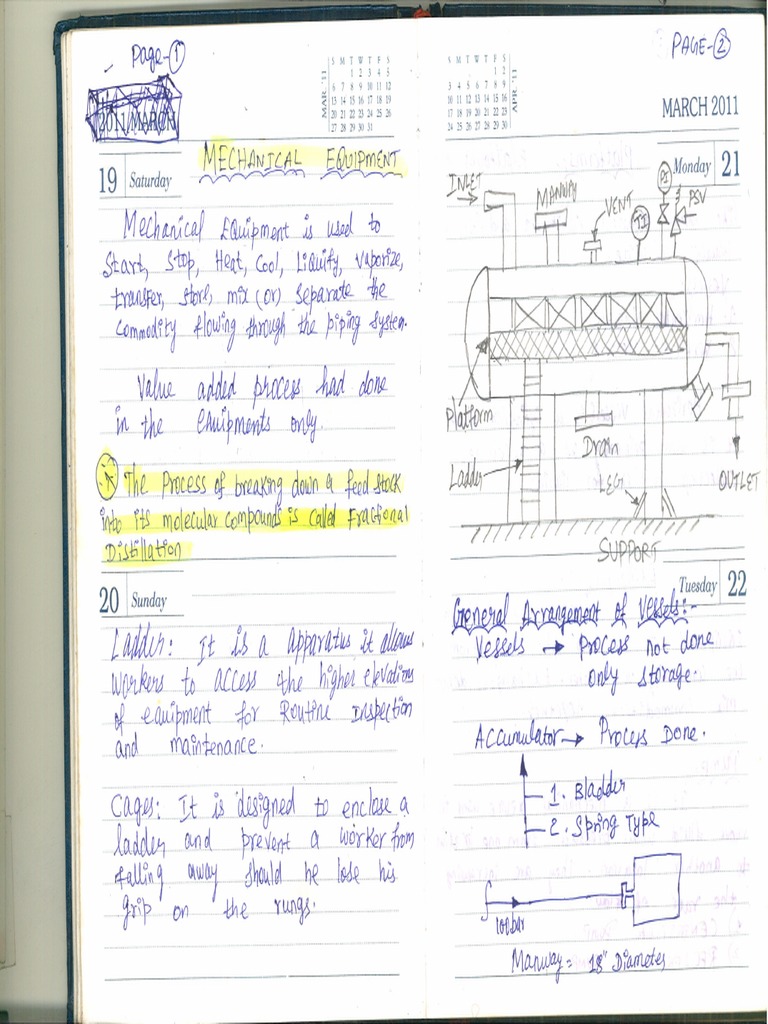 Page-1
MAR '11
S M T W T F S
1 2 3 4 5
6 7 8 9 10 11 12
13 14 15 16 17 18 19
20 21 22 23 24 25 26
27 28 29 30 31
2011/MARCH
MECHANICAL EQUIPMENT
19 Saturday
Mechanical Equipment is used to
Start, Stop, Heat, Cool, Liquify, Vaporize,
transfer, store, mix (or) separate the
Commodity flowing through the piping system.
Value added process had done
in the Equipments only.
The Process of breaking down a feed stock
into its molecular compounds is called Fractional
Distillation
20 Sunday
Ladder: It is a apparatus it allows
workers to access the higher elevations
of equipment for Routine Inspection
and maintenance.
Cages: It is designed to enclose a
ladder and prevent a worker from
falling away should he lose his
grip on the rungs.
PAGE-2
APR '11
S M T W T F S
1 2
3 4 5 6 7 8 9
10 11 12 13 14 15 16
17 18 19 20 21 22 23
24 25 26 27 28 29 30
MARCH 2011
Monday 21
INLET
MANWAY
VENT
TI
PI
PSV
Platform
Ladder
Drain
LEG
OUTLET
SUPPORT
Tuesday 22
General Arrangement of Vessels:-
Vessels → Process not done
only storage.
Accumulator → Process Done.
1. Bladder
2. Spring Type
100bar
Manway = 18" Diameter